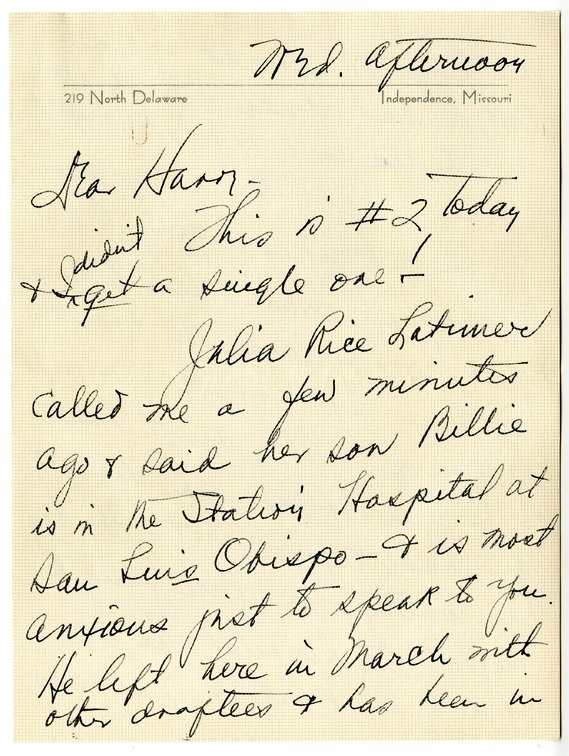 Wed. Afternoon
219 North Delaware Independence, Missouri
Dear Harry -
This is #2 Today
& I didn't get a single one - !
Julia Rice Latimer
called me a few minutes
ago & said her son Billie
is in the Station Hospital at
San Luis Obispo - & is most
anxious just to speak to you.
He left here in March with
other draftees & has been in